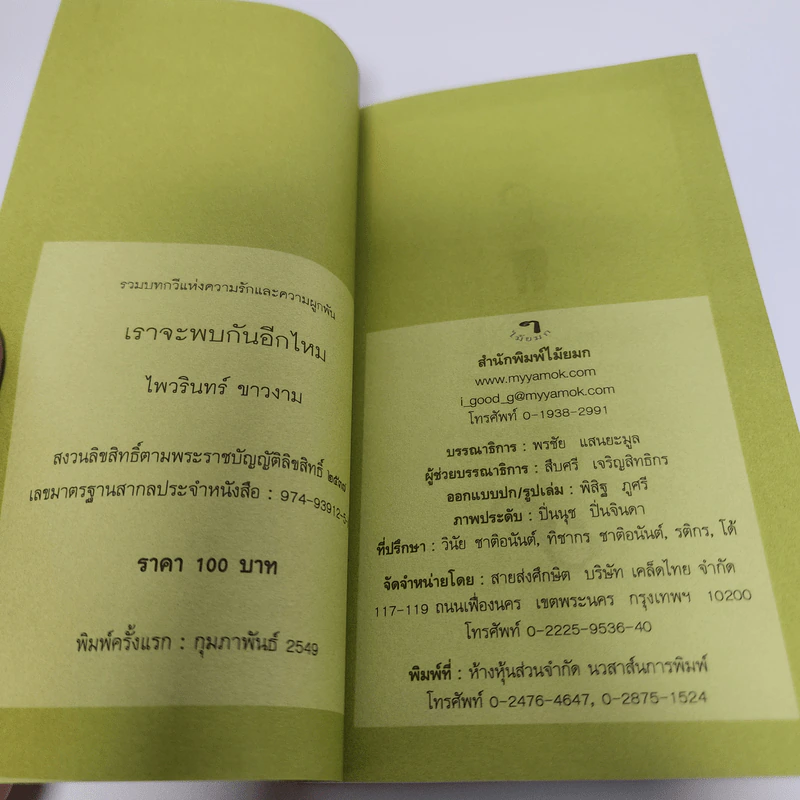 รวมบทกวีแห่งความรักและความผูกพัน
เราจะพบกันอีกไหม
ไพวรินทร์ ขาวงาม
สงวนลิขสิทธิ์ตามพระราชบัญญัติลิขสิทธิ์ ๒๕๓๗
เลขมาตรฐานสากลประจำหนังสือ : 974-93912-5-
ราคา 100 บาท
พิมพ์ครั้งแรก : กุมภาพันธ์ 2549
ๆ
ไม้ยมก
สำนักพิมพ์ไม้ยมก
www.myyamok.com
i_good_g@myyamok.com
โทรศัพท์ 0-1938-2991
บรรณาธิการ : พรชัย แสนยะมูล
ผู้ช่วยบรรณาธิการ : สืบศรี เจริญสิทธิกร
ออกแบบปก/รูปเล่ม : พิสิฐ ภูศรี
ภาพประดับ : ปิ่นนุช ปิ่นจินดา
ที่ปรึกษา : วินัย ชาติอนันต์, ทิชากร ชาติอนันต์, รติกร, โด้
จัดจำหน่ายโดย : สายส่งศึกษิต บริษัท เคล็ดไทย จำกัด
117-119 ถนนเฟื่องนคร เขตพระนคร กรุงเทพฯ 10200
โทรศัพท์ 0-2225-9536-40
พิมพ์ที่ : ห้างหุ้นส่วนจำกัด นวสาส์นการพิมพ์
โทรศัพท์ 0-2476-4647, 0-2875-1524